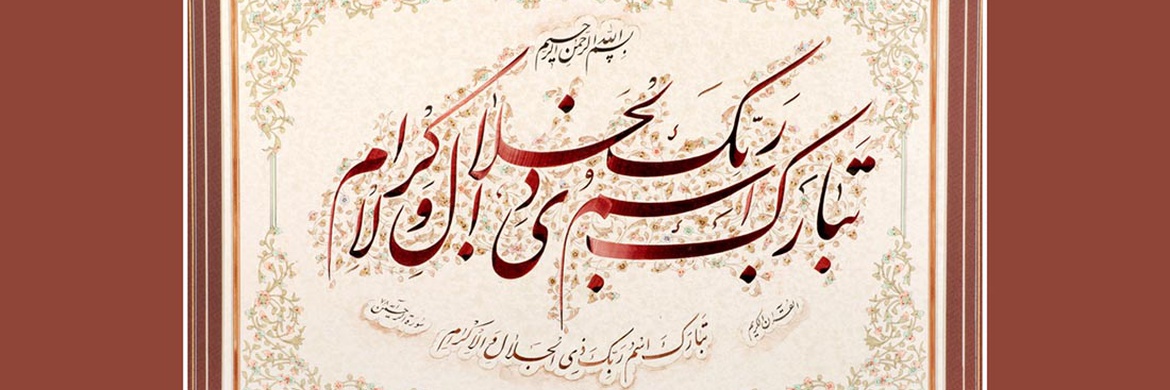 بسم الله الرحمن الرحيم
تبارك اسم ربك ذي الجلال والاكرام
القرآن الكريم
سورة الرحمن آية ٧٨
تَبَارَكَ اسْمُ رَبِّكَ ذِي الْجَلَالِ وَالْإِكْرَامِ